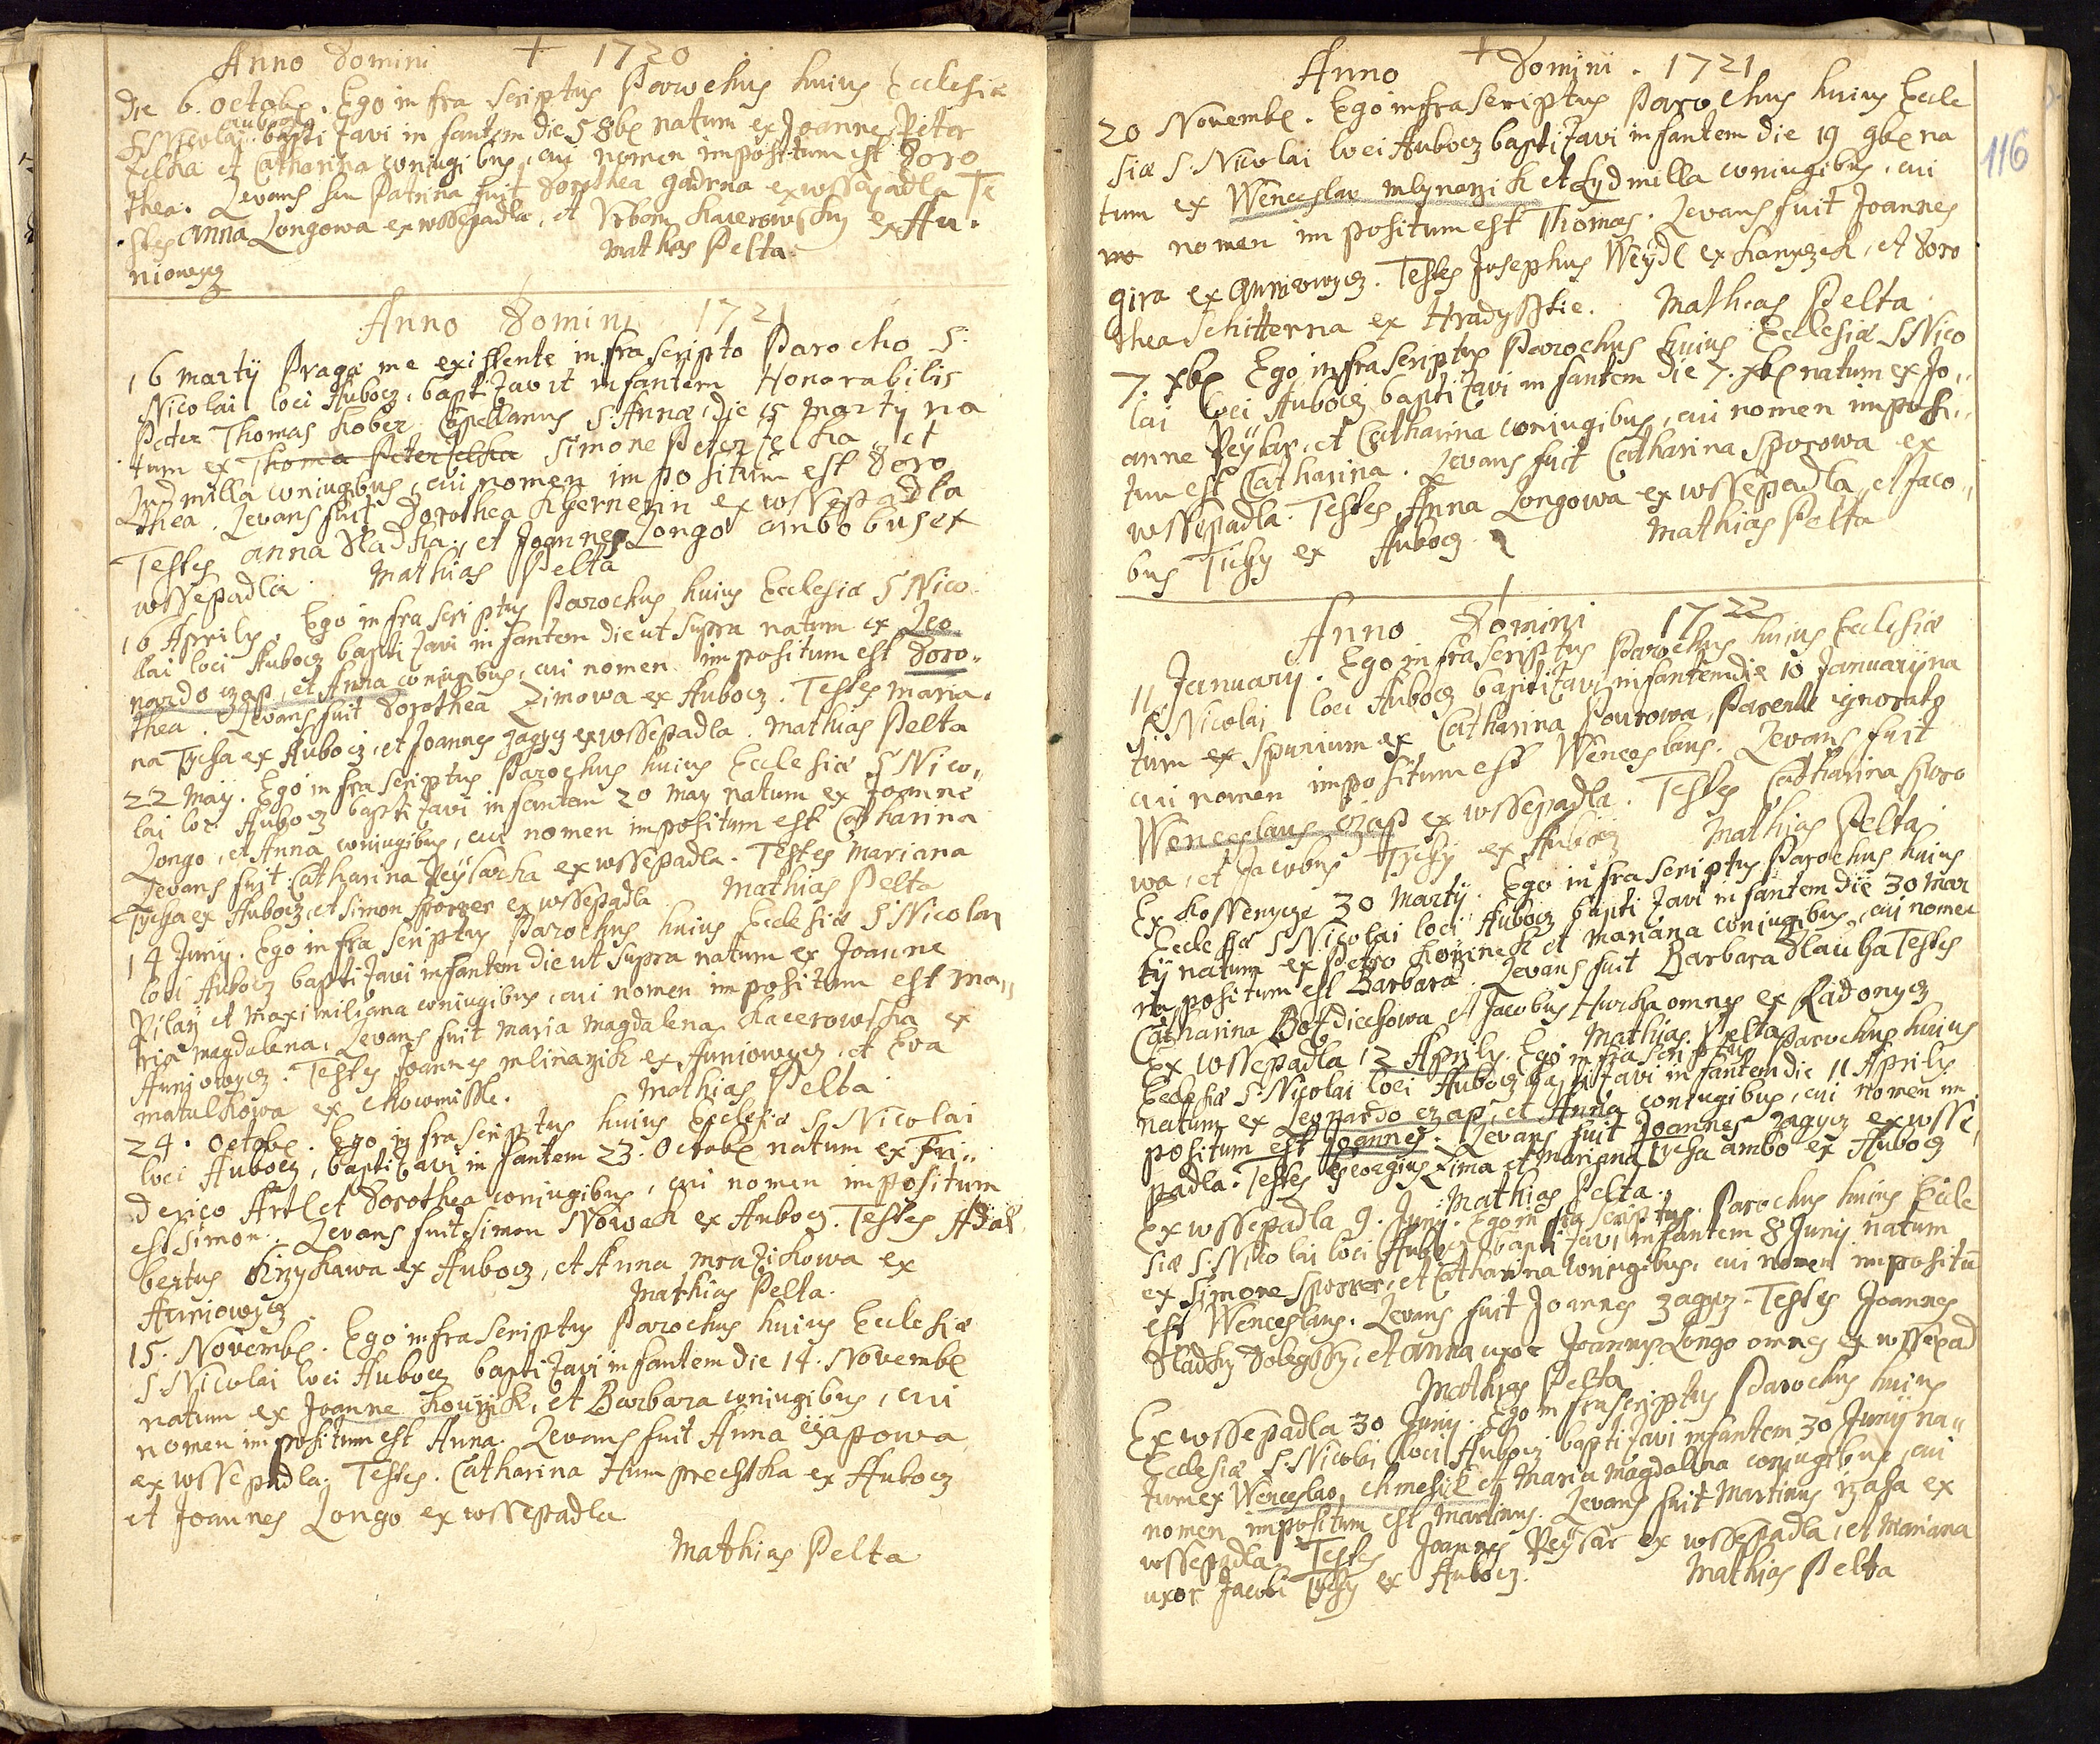 Anno Domini + 1720
Die 6. octobr. Ego infra scriptus Parochus huius Ecclesiæ
S Nicolai Aubocz baptizavi infantem die 5 8br natum ex Joanne Peter
zelka et Catharina coniugibus, cui nomen impositum est Doro
thea. Levans seu Patrina fuit Dorothea gadrna ex wssepadla Te
stes anna Longowa ex wssepadla, et Vrban kacerowsky ex Au.
niowycz Mathias Pelta
Anno Domini 1721
16 Martÿ Pragæ me existente infra scripto Parocho S.
Nicolai loci Aubocz, baptizavit infantem Honorabilis
Peter Thomas kober Capellanus S. Annæ, die 15 Martÿ na
tum ex Thoma Peter zelka Simone Peter zelka et
Ludmilla coniugibus, cui nomen impositum est Doro
thea. Levans fuit Dorothea ex wssepadla
Testes anna Sladka, et Joannes Longo ambobus ex
wssepadla Mathias Pelta
16 Aprilys. Ego infra scriptus Parochus huius Ecclesiæ S Nico
lai loci Aubocz baptizavi infantem die ut supra natum ex Leo
nardo czap, et Anna coniugibus, cui nomen impositum est Doro„
thea. Levans fuit Dorothea Zimowa ex Aubocz. Testes maria.
na Tycha ex Aubocz, et Joannes zagycz ex wssepadla. Mathias Pelta
22 Maÿ. Ego infra scriptus Parochus huius Ecclesiæ S Nico„
lai loc. Aubocz baptizavi infantem 20 may natum ex Joanne
Longo, et Anna coniugibus, cui nomen impositum est Catharina
Levans fuit Catharina Reÿsarka ex wssepadla. Testes Mariana
Tycha ex Aubocz, et Simon sporrer ex wssepadla Mathias Pelta
14 Junÿ. Ego infra scriptus Parochus huius Ecclesiæ S Nicolai
loci Aubocz baptizavi infantem die ut supra natum ex Joanne
Pilaÿ et Maximiliana coniugibus, cui nomen impositum est Ma„
ria Magdalena. Levans fuit Maria Magdalena kacerowska ex
Auniowycz. Testes Joannes mlinarzik ex Auniowycz, et Eva
matulkowa ex Chowmisste. Mathias Pelta
24. octobr. Ego infra scriptus huius Ecclesiæ S Nicolai
loci Aubocz, baptizavi infantem 23. Octobr natum ex Fri„
derico Artl et Dorothea coniugibus, cui nomen impositum
est Simon. Levans fuit Simon Nowak ex Aubocz. Testes Adal
bertus krzykawa ex Aubocz, et Anna mrazikowa ex
Auniowycz Mathias Pelta.
15. Novembr. Ego infra scriptus Parochus huius Ecclesiæ
S. Nicolai loci Aubocz baptizavi infantem die 14. Novembr
natum ex Joanne kourzik, et Barbara coniugibus, cui
nomen impositum est Anna. Levans fuit Anna czapowa
ex wssepadla. Testes. Catharina Humprechtka ex Aubocz
et Joannes Longo ex wssepadla
Mathias Pelta
Anno + Domini. 1721
116
20 Novembr. Ego infra scriptus Parochus huius Eccle
siæ S. Nicolai loci Aubocz baptizavi infantem die 19 9br na
tum ex Wenceslao mlynarzik et Lydmilla coniugibus, cui
no nomen impositum est Thomas. Levans fuit Joannes
gira ex auniowycz. Testes Josephus Weÿdl ex kanyczek, et Doro
thea Schitterna ex Hradysstie. Mathias Pelta
7. Xbr Ego infra scriptus Parochus huius Ecclesiæ S Nico
lai loci Aubocz baptizavi infantem die 7. xbr natum ex Jo„
anne Reÿsar, et Catharina coniugibus, cui nomen imposi„
tum est Catharina. Levans fuit Catharina Sporowa ex
wssepadla. Testes Anna Longowa ex wssepadla, et Jaco„
bus Tichy ex Aubocz Mathias Pelta
Anno + Domini 1722
11 Januarÿ. Ego infra scriptus Parochus huius Ecclesiæ
S. Nicolai loci Aubocz baptizavi infantem die 10 Januarÿ na
tum ex Spurium ex Catharina Pourowa, Parente ignorato
cui nomen impositum est Wenceslaus. Levans fuit
Wenceslaus czap ex wssepadla. Testes Catharina Sporo
wa, et Jacobus Tychy ex Aubocz Mathias Pelta
Ex kossenycze 30 Martÿ. Ego infra scriptus Parochus huius
Ecclesiæ S Nicolai loci Aubocz baptizavi infantem die 30 Mar
tÿ natum ex Petro korzinek et Mariana coniugibus, cui nomen
impositum est Barbara. Levans fuit Barbara Dlauha Testes
Catharina et Jacobus Hurka omnes ex Radonycz
Mathias Pelta
Ex wssepadla 12 Aprilys. Ego infra scriptus Parochus huius
Ecclesiæ S. Nicolai loci Aubocz baptizavi infantem die 11 Aprilys
natum ex Leonardo czap, et Anna coniugibus, cui nomen im
positum est Joannes. Levans fuit Joannes zagycz ex wsse„
padla. Testes Georgius zima et Mariana Tycha ambo ex Aubocz
Mathias Pelta.
Ex wssepadla 9. Junÿ. Ego infra scriptus Parochus huius Eccle
siæ S. Nicolai loci Aubocz baptizavi infantem 8 Junÿ natum
ex Simone sporrer, et Catharina coniugibus, cui nomen impositū
est Wenceslaus. Levans fuit Joannes zagycz. Testes Joannes
Sladky Dolegssy, et anna uxor Joannys Longo omnes ex wssepad
Mathias Pelta
Ex wssepadla 30 Junÿ. Ego infra scriptus Parochus huius
Ecclesiæ S. Nicolai loci Aubocz baptizavi infantem 30 Junÿ na„
tum ex Wenceslao chmelik et Maria Magdalena coniugibus, cui
nomen impositum est Martinus. Levans fuit Martinus ex
wssepadla Testes Joannes Reÿsar ex wssepadla, et Mariana
uxor Jacobi Tychy ex Aubocz. Mathias Pelta